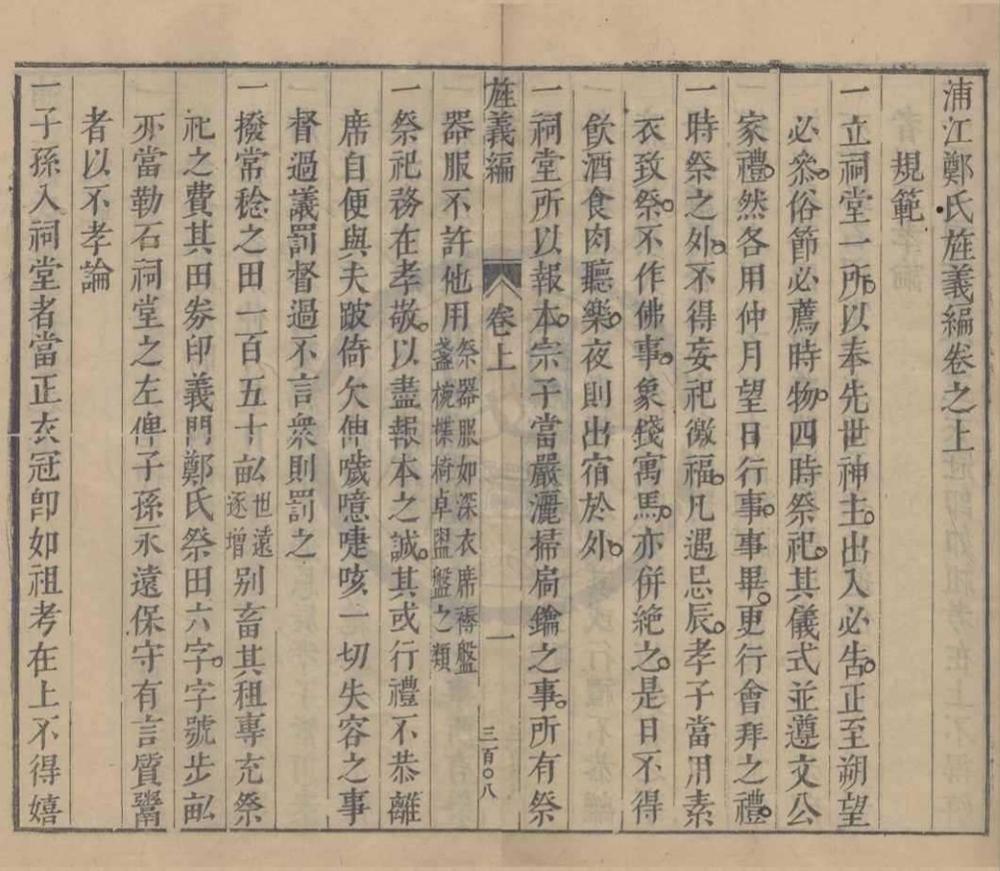 浦江鄭氏旌義編卷之上
規範
一立祠堂一所以奉先世神主出入必告正至朔望
必叅俗節必薦時物四時祭祀其儀式並遵文公
家禮然各用仲月望日行事事畢更行會拜之禮
一時祭之外不得妄祀徼福凡遇忌辰孝子當用素
衣致祭不作佛事象錢寓馬亦併絶之是日不得
飲酒食肉聽樂夜則出宿於外
一祠堂所以報本宗子當嚴灑掃扃鑰之事所有祭
旌義編 卷上 一 三百〇八
器服不許他用祭器服如深衣席褥盤盞椀楪椅卓盥盤之類
一祭祀務在孝敬以盡報本之誠其或行禮不恭離
席自便與夫跛倚欠伸噦噫嚏咳一切失容之事
督過議罰督過不言衆則罰之
一撥常稔之田一百五十畝世遠逐增别畜其租專充祭
祀之費其田券印義門鄭氏祭田六字字號步畝
亦當勒石祠堂之左俾子孫永遠保守有言質鬻
者以不孝論
一子孫入祠堂者當正衣冠卽如祖考在上不得嬉